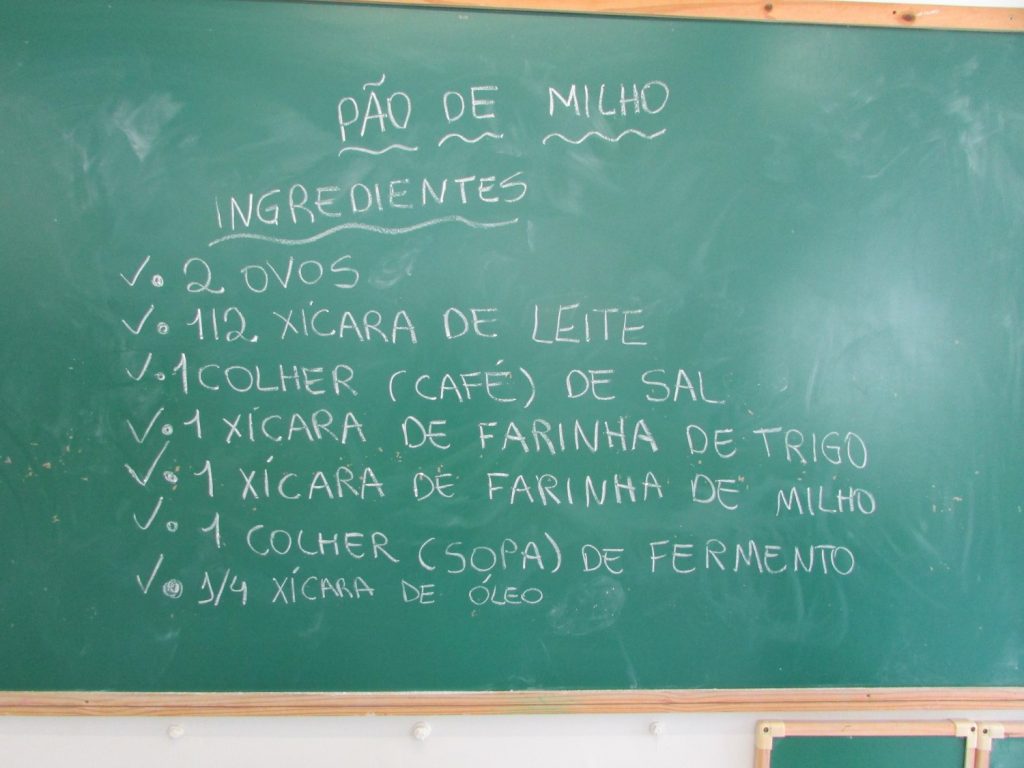 PÃO DE MILHO
INGREDIENTES
✓• 2 OVOS
✓• 1/2 XÍCARA DE LEITE
✓• 1 COLHER (CAFÉ) DE SAL
✓• 1 XÍCARA DE FARINHA DE TRIGO
✓• 1 XÍCARA DE FARINHA DE MILHO
✓• 1 COLHER (SOPA) DE FERMENTO
✓• 1/4 XÍCARA DE ÓLEO